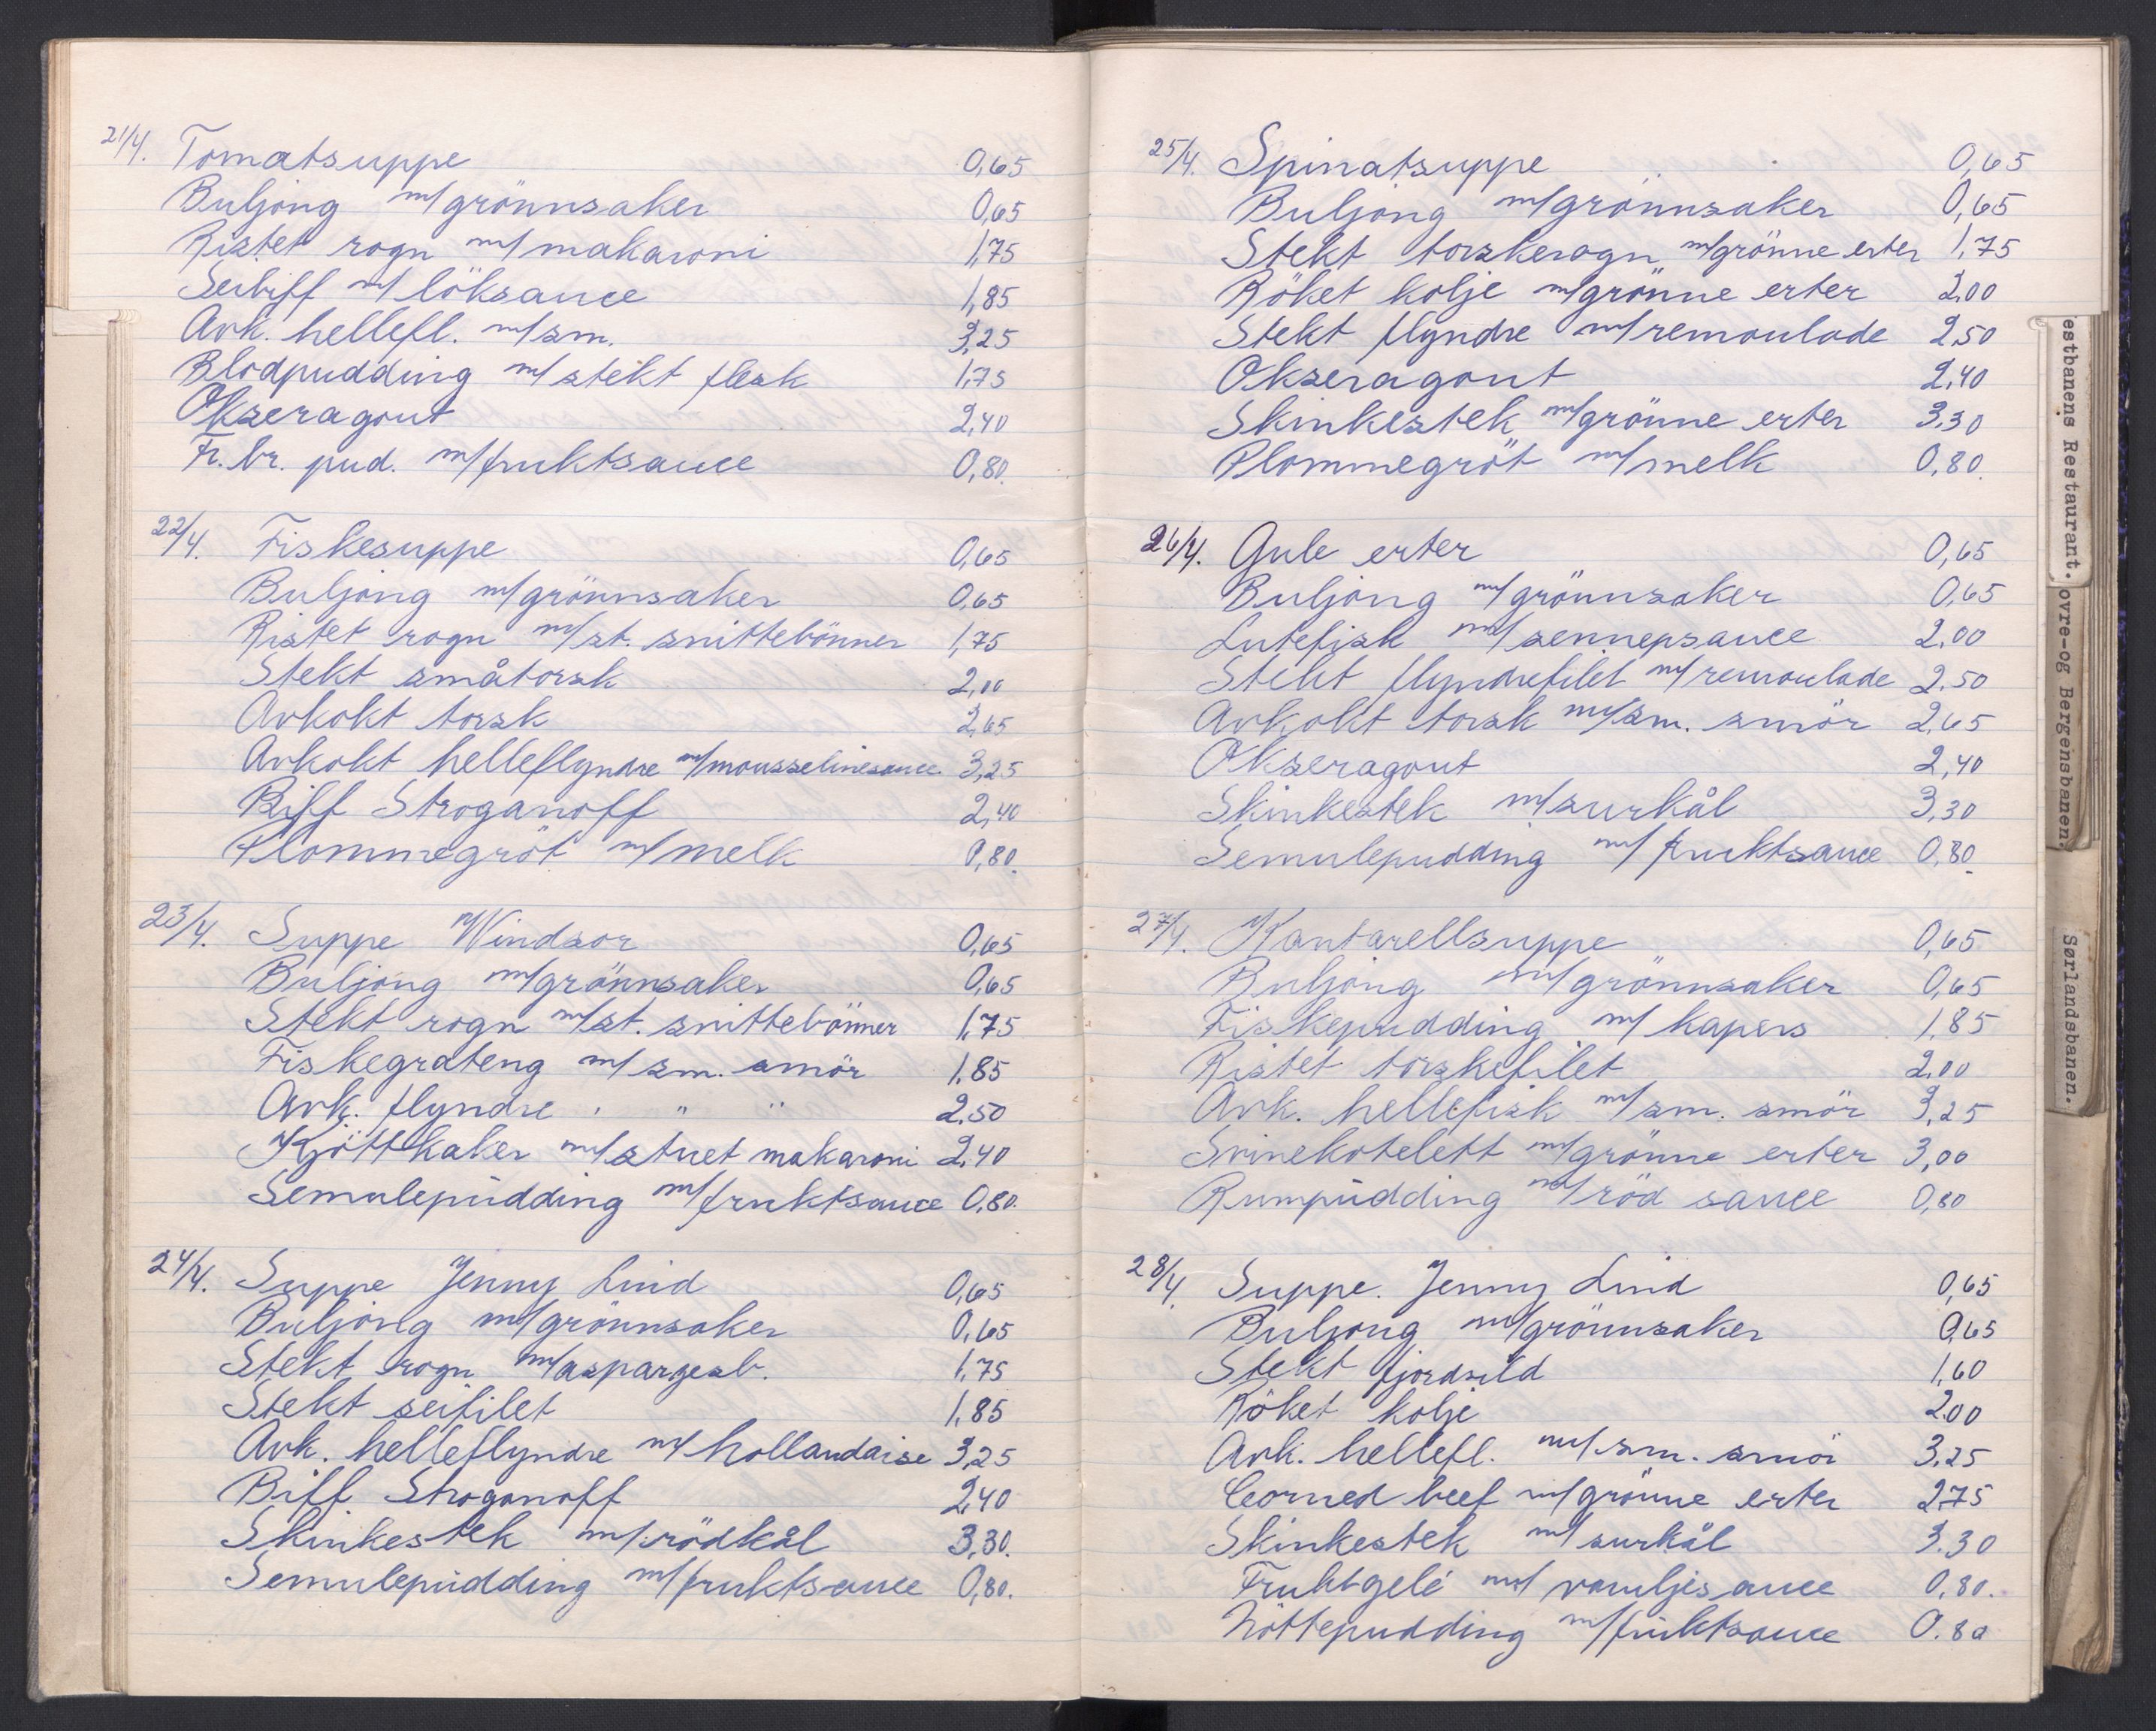 21/4. Tomatsuppe 0,65
Buljong m/grönnsaker 0,65
Ristet rogn m/makaroni 1,75
Seibiff m/löksauce 1,85
Avk. hellefl. m/sm. 3,25
Blodpudding m/stekt flesk 1,75
Okseragout 2,40
Fr. br. pud. m/fruktsauce 0,80.
22/4. Fiskesuppe 0,65
Buljong m/grönnsaker 0,65
Ristet rogn m/st. snittebönner 1,75
Stekt småtorsk 2,00
Avkokt torsk 2,65
Avkokt helleflyndre m/mousselinesauce. 3,25
Biff Stroganoff 2,40
Plommegröt m/melk 0,80.
23/4. Suppe Windsor 0,65
Buljong m/grönnsaker 0,65
Stekt rogn m/st. snittebönner 1,75
Fiskegrateng m/sm. smör 1,85
Avk. flyndre " " " 2,50
Kjöttkaker m/stuet makaroni 2,40
Semulepudding m/fruktsauce 0,80.
24/4. Suppe Jenny Lind 0,65
Buljong m/grönnsaker 0,65
Stekt rogn m/aspargesb. 1,75
Stekt seifilet 1,85
Avk. helleflyndre m/hollandaise 3,25
Biff Stroganoff 2,40
Skinkestek m/rödkål 3,30.
Semulepudding m/fruktsauce 0,80.
25/4. Spinatsuppe 0,65
Buljong m/grönnsaker 0,65
Stekt torskerogn m/grönne erter 1,75
Röket kolje m/grönne erter 2,00
Stekt flyndre m/remoulade 2,50
Okseragout 2,40
Skinkestek m/grönne erter 3,30
Plommegröt m/melk 0,80.
26/4. Gule erter 0,65
Buljong m/grönnsaker 0,65
Lutefisk m/sennepsauce 2,00
Stekt flyndrefilet m/remoulade 2,50
Avkokt torsk m/sm. smör 2,65
Okseragout 2,40
Skinkestek m/surkål 3,30
Semulepudding m/fruktsauce 0,80.
27/4. Kantarellsuppe 0,65
Buljong m/grönnsaker 0,65
Fiskepudding m/kapers 1,85
Ristet torskefilet 2,00
Avk. hellefisk m/sm. smör 3,25
Svinekotelett m/grönne erter 3,00
Rumpudding m/röd sauce 0,80
28/4. Suppe. Jenny Lind 0,65
Buljong m/grönnsaker 0,65
Stekt fjordsild 1,60
Röket kolje 2,00
Avk. hellefl. m/sm. smör 3,25
Corned beef m/grönne erter 2,75
Skinkestek m/surkål 3.30
Fruktgelé m/vaniljesauce 0,80.
Nöttepudding m/fruktsauce 0.80
estbanens Restaurant.
ovre-og Bergensbanen.
Sørlandsbanen.